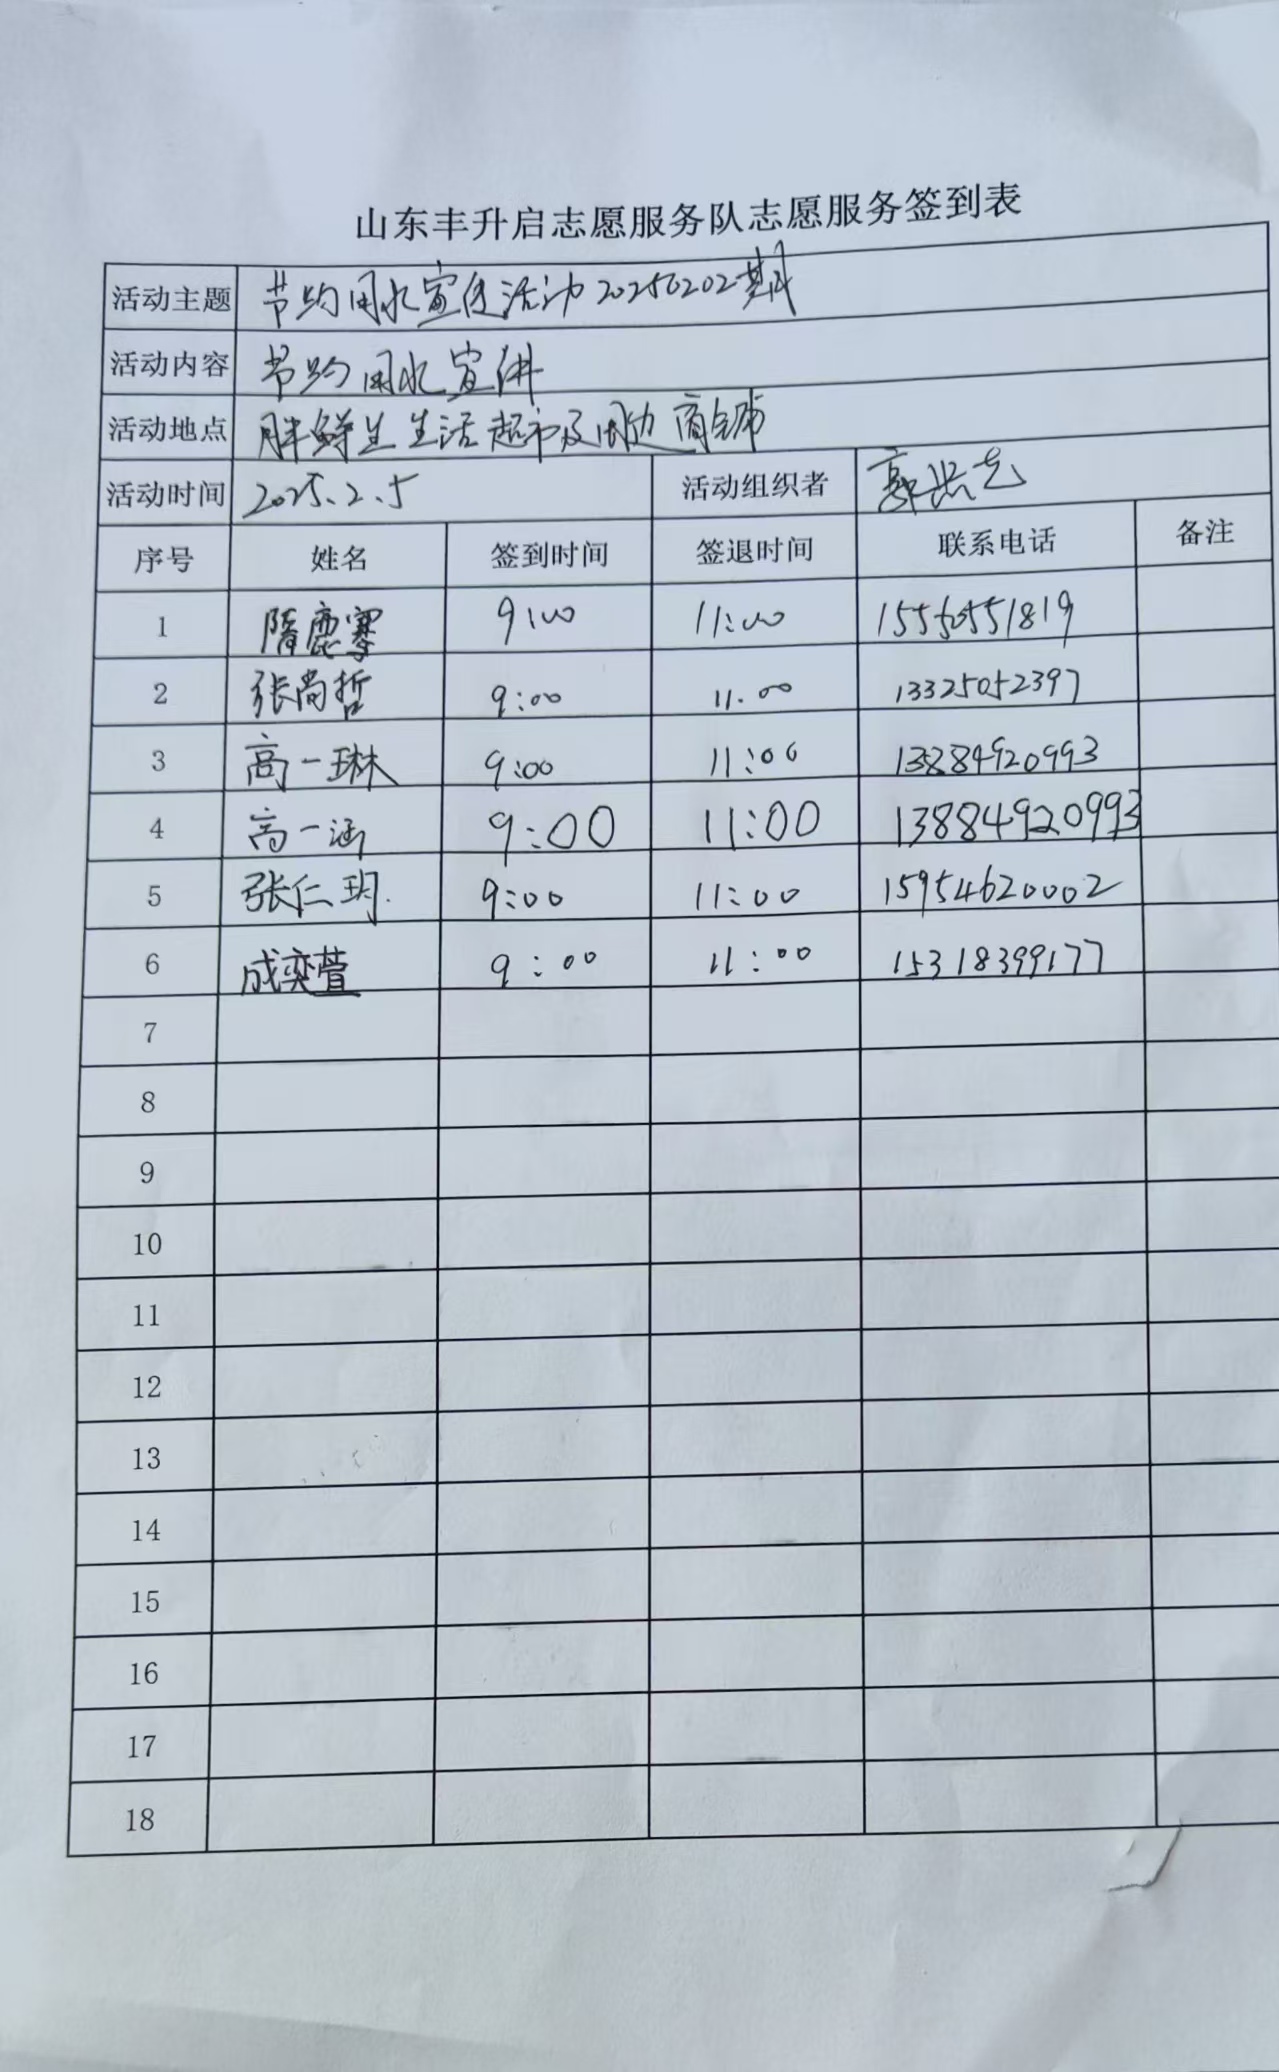 山东丰升启志愿服务队志愿服务签到表
活动主题 节约用水宣传活动20250202期
活动内容 节约用水宣讲
活动地点 胖鲜生生活超市及周边商铺
活动时间 2025.2.5 活动组织者 郭
序号 姓名 签到时间 签退时间 联系电话 备注
1 隋鹿骞 9:00 11:00 15550551819
2 张尚哲 9:00 11:00 13325052397
3 高一琳 9:00 11:00 13884920993
4 高一涵 9:00 11:00 13884920993
5 张仁玥 9:00 11:00 15954620002
6 成奕萱 9:00 11:00 15318399177
7
8
9
10
11
12
13
14
15
16
17
18